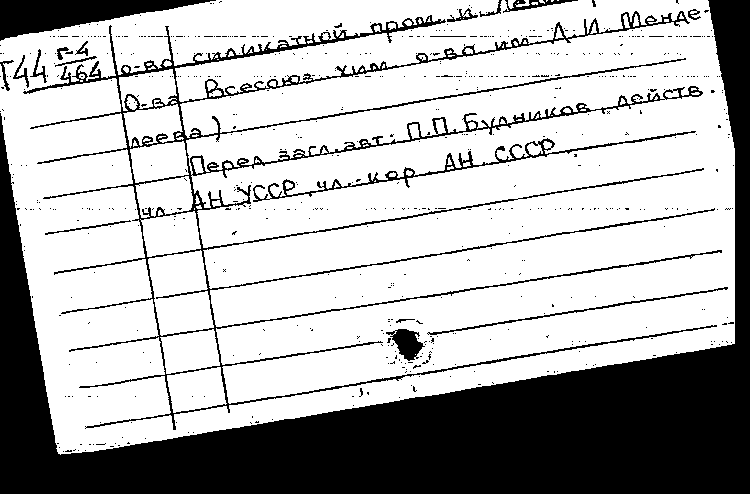 Г44 Г-4
464
о-во силикатной пром. и
О-ва Всесоюз хим о-ва им Д.И. Менде-
леева).
Перед загл. авт: П.П. Будников, действ.
чл. АН УССР, чл.-кор. АН. СССР